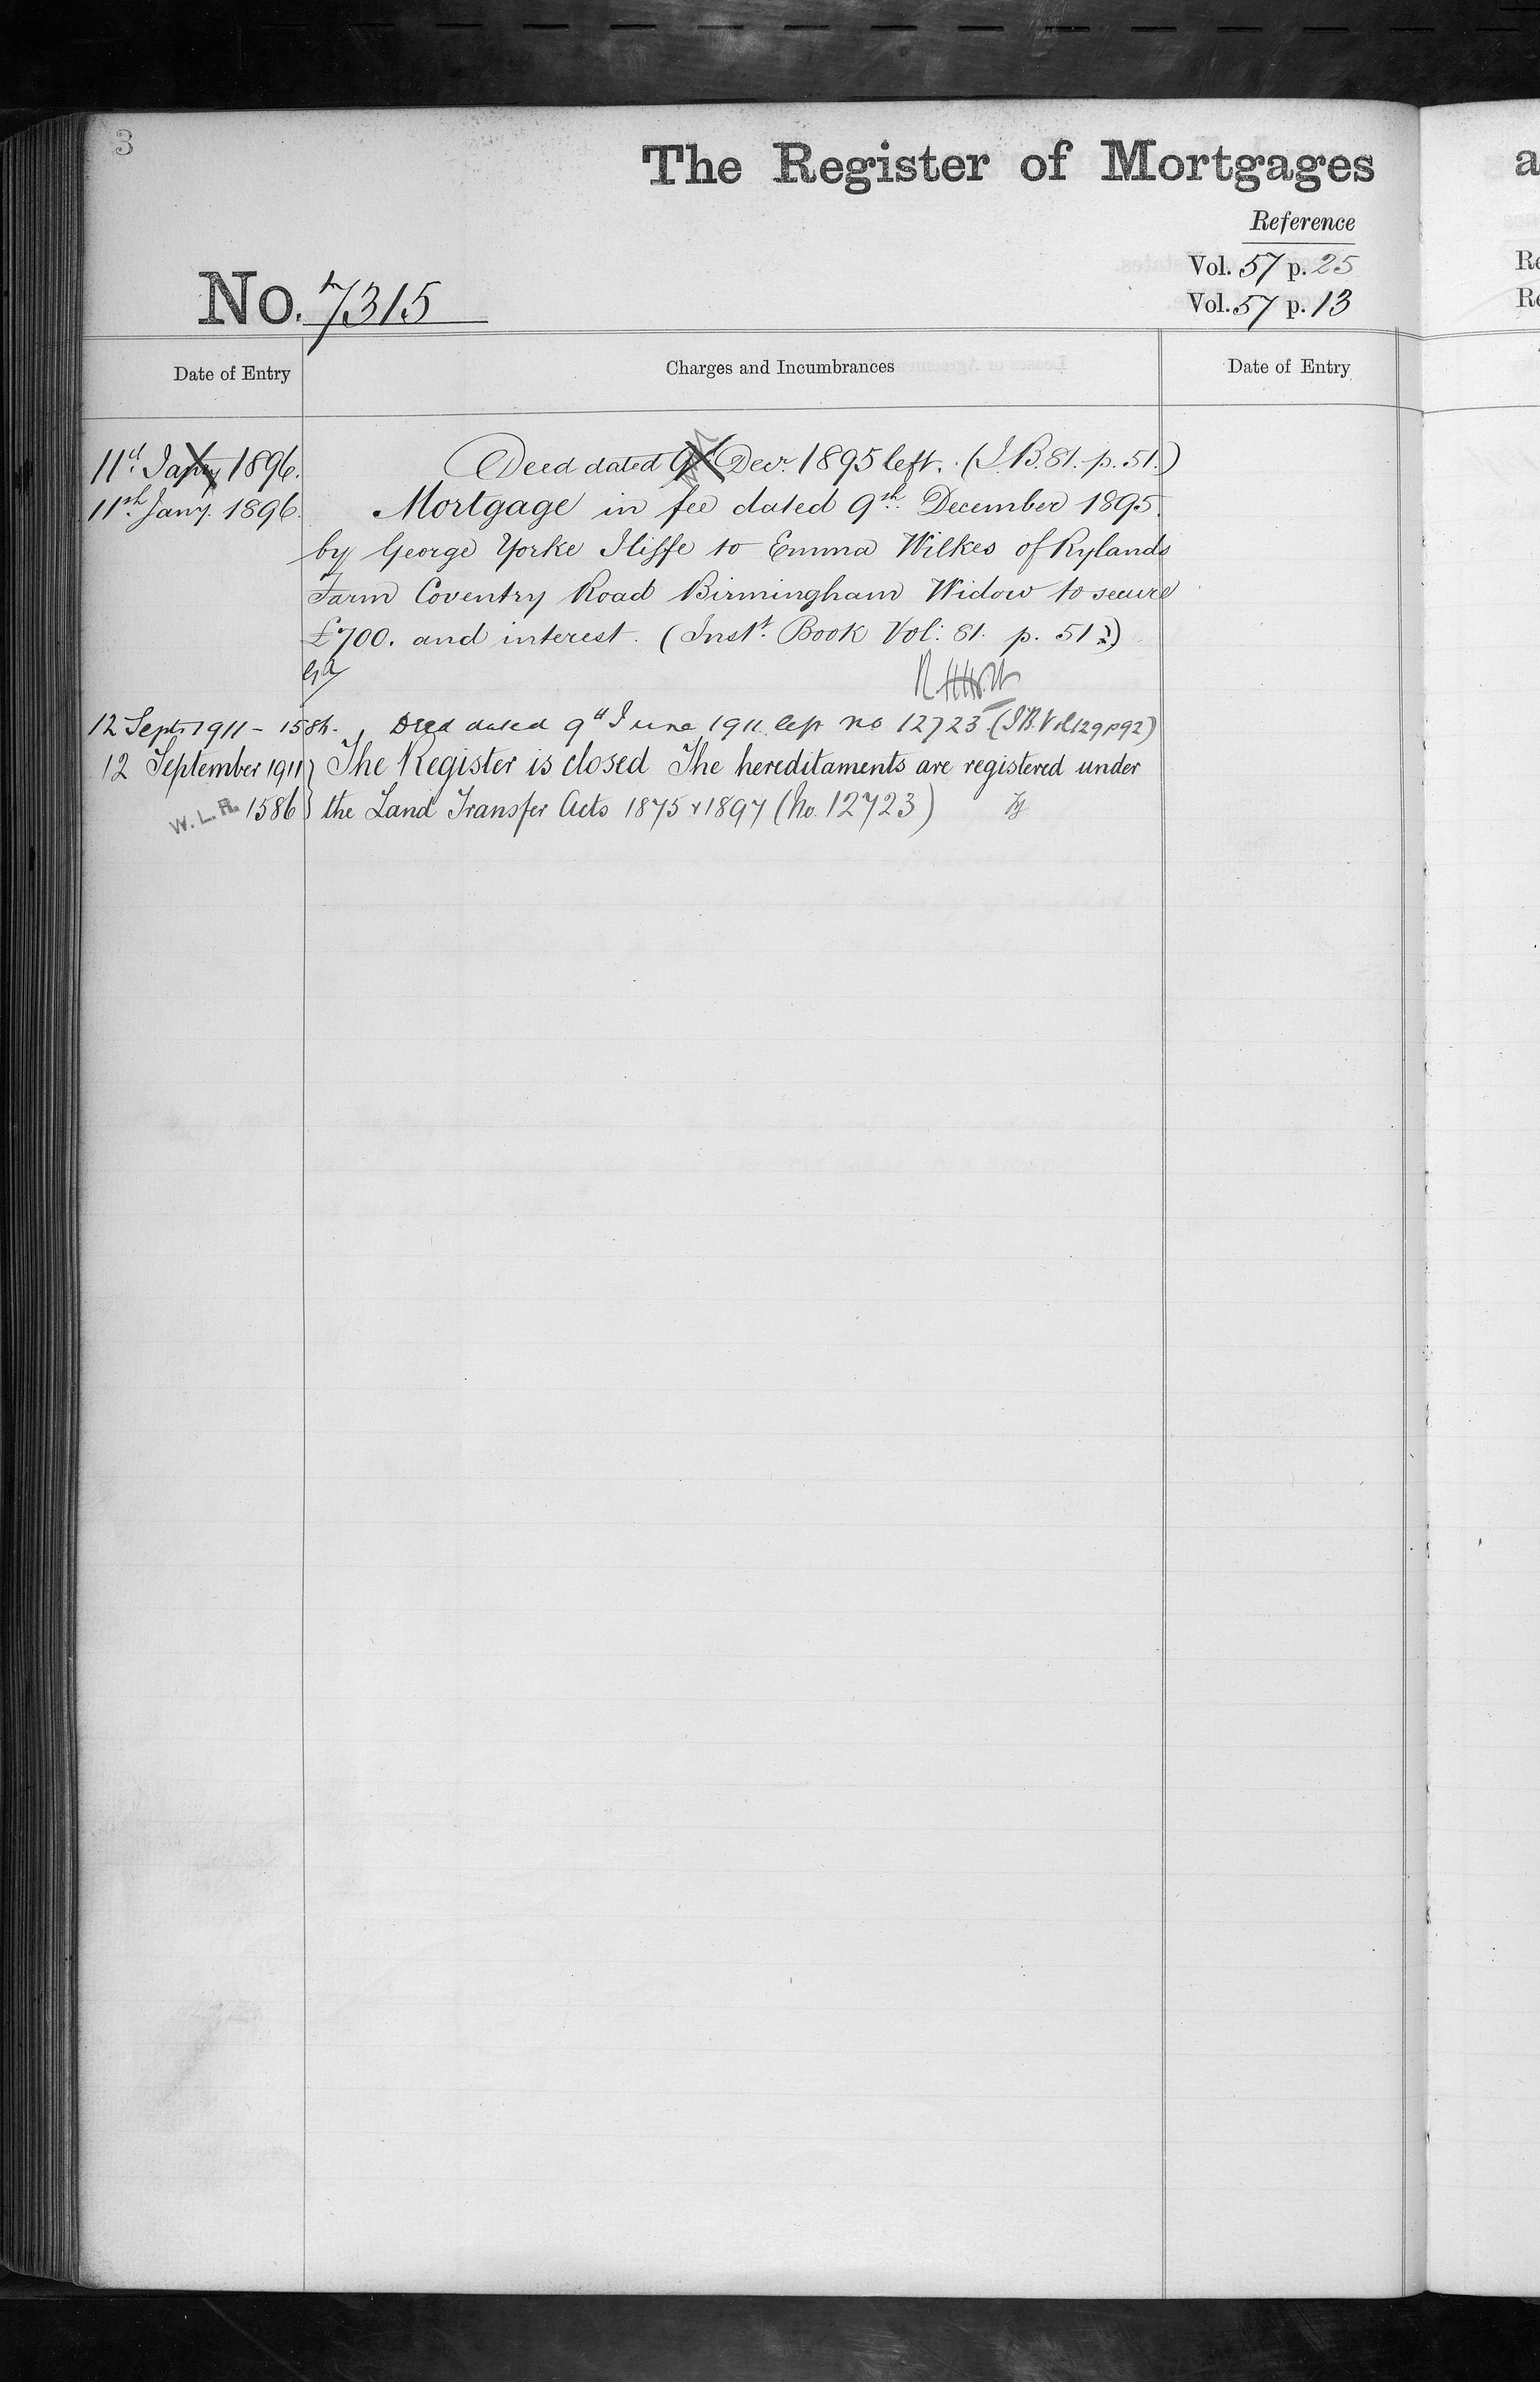 3
The Register of Mortgages
Reference
Vol. 57 p. 25
Vol. 57 p. 13
No. 7315
Date of Entry
Charges and Incumbrances
Date of Entry
11th Jany 1896. Deed dated 9th Decr. 1895 left. (I.B. 81. p. 51.)
11th Jany. 1896. Mortgage in fee dated 9th December 1895.
by George Yorke Iliffe to Emma Wilkes of Rylands
Farm Coventry Road Birmingham Widow to secure
£700. and interest. (Inst. Book Vol: 81. p. 51.)
12 Sept 1911 - 1586. Deed dated 9th June 1911 left no 12723 (I.B. Vol 129 p 92)
12 September 1911 } The Register is closed The hereditaments are registered under
W.L.R. 1586 } the Land Transfer Acts 1875 & 1897 (No. 12723)
a
Re
Re